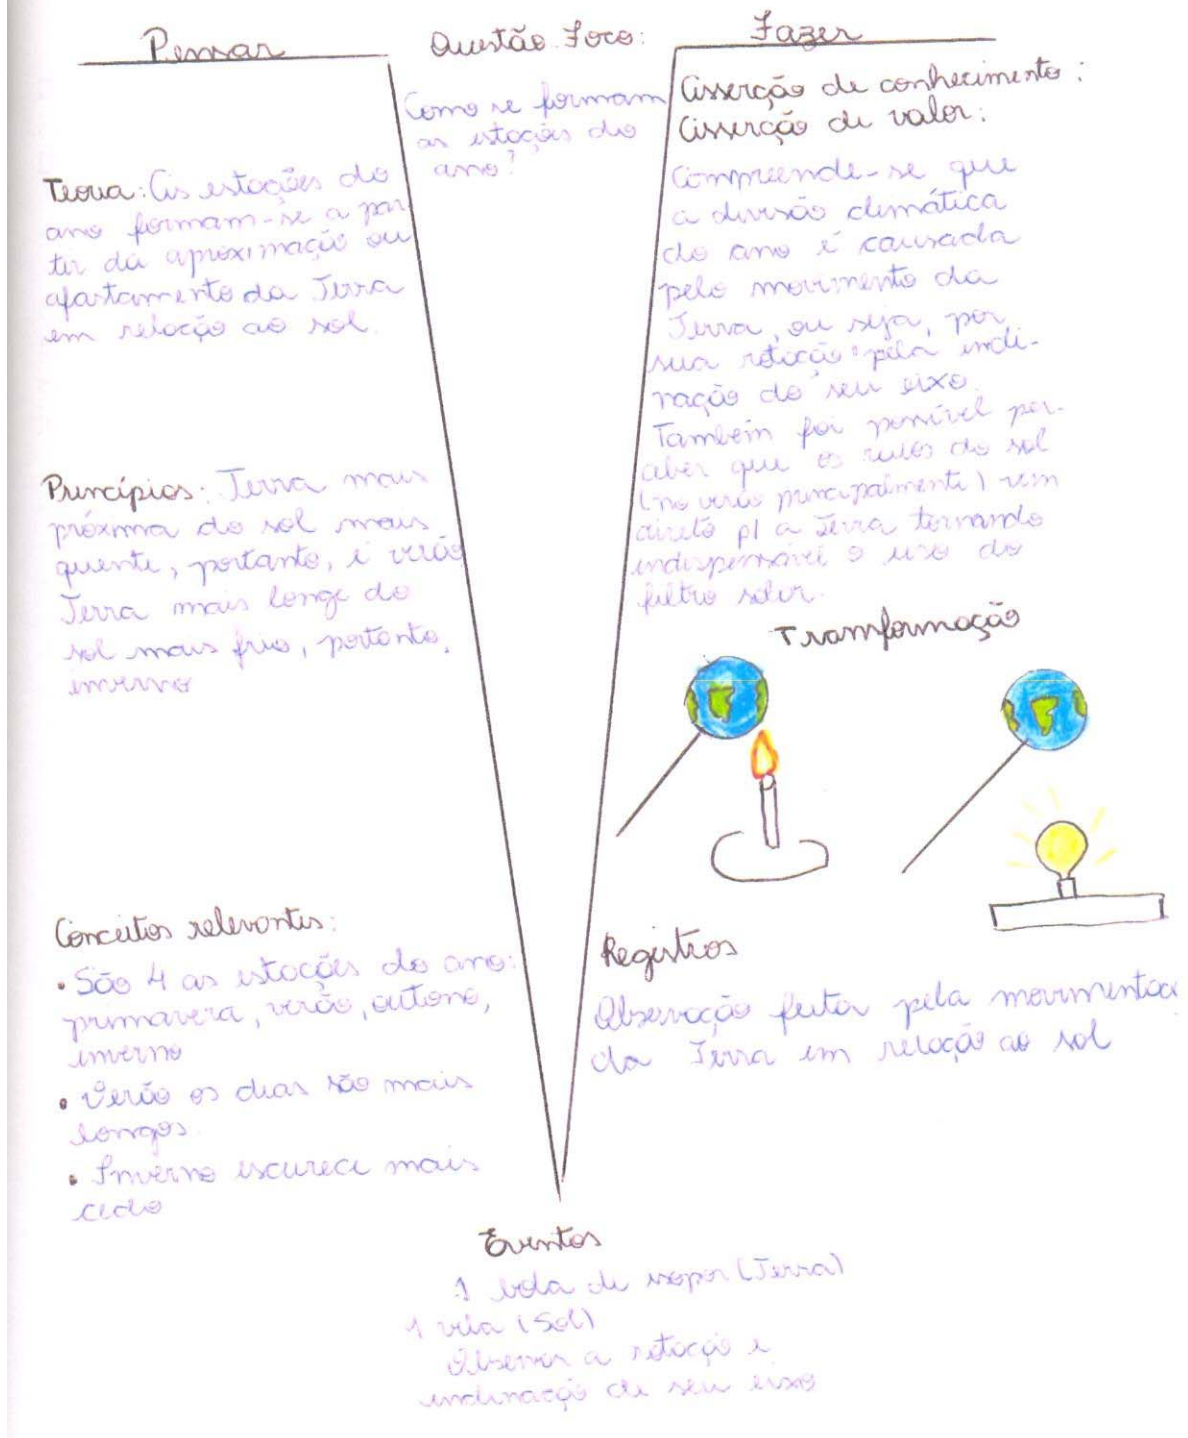 Pensar
Questão Foco:
Fazer
Como se formam
as estações do
ano?
Teoria: As estações do
ano formam-se a par
tir da aproximação ou
afastamento da Terra
em relação ao sol.
Princípios: Terra mais
próxima do sol mais
quente, portanto, é verão
Terra mais longe do
sol mais frio, portanto,
inverno
Conceitos relevantes:
• São 4 as estações do ano:
primavera, verão, outono,
inverno
• Verão os dias são mais
longos.
• Inverno escurece mais
cedo
Asserção de conhecimento:
Asserção de valor:
Compreende-se que
a divisão climática
do ano é causada
pelo movimento da
Terra, ou seja, por
sua rotação pela incli-
nação do seu eixo.
Também foi possível per-
ceber que os raios do sol
(no verão principalmente) vem
direto p/ a Terra tornando
indispensável o uso do
filtro solar.
Transformação
Registros
Observação feita pela movimentaç
da Terra em relação ao sol
Eventos
1 bola de isopor (Terra)
1 vela (Sol)
Observar a rotação e
inclinação de seu eixo